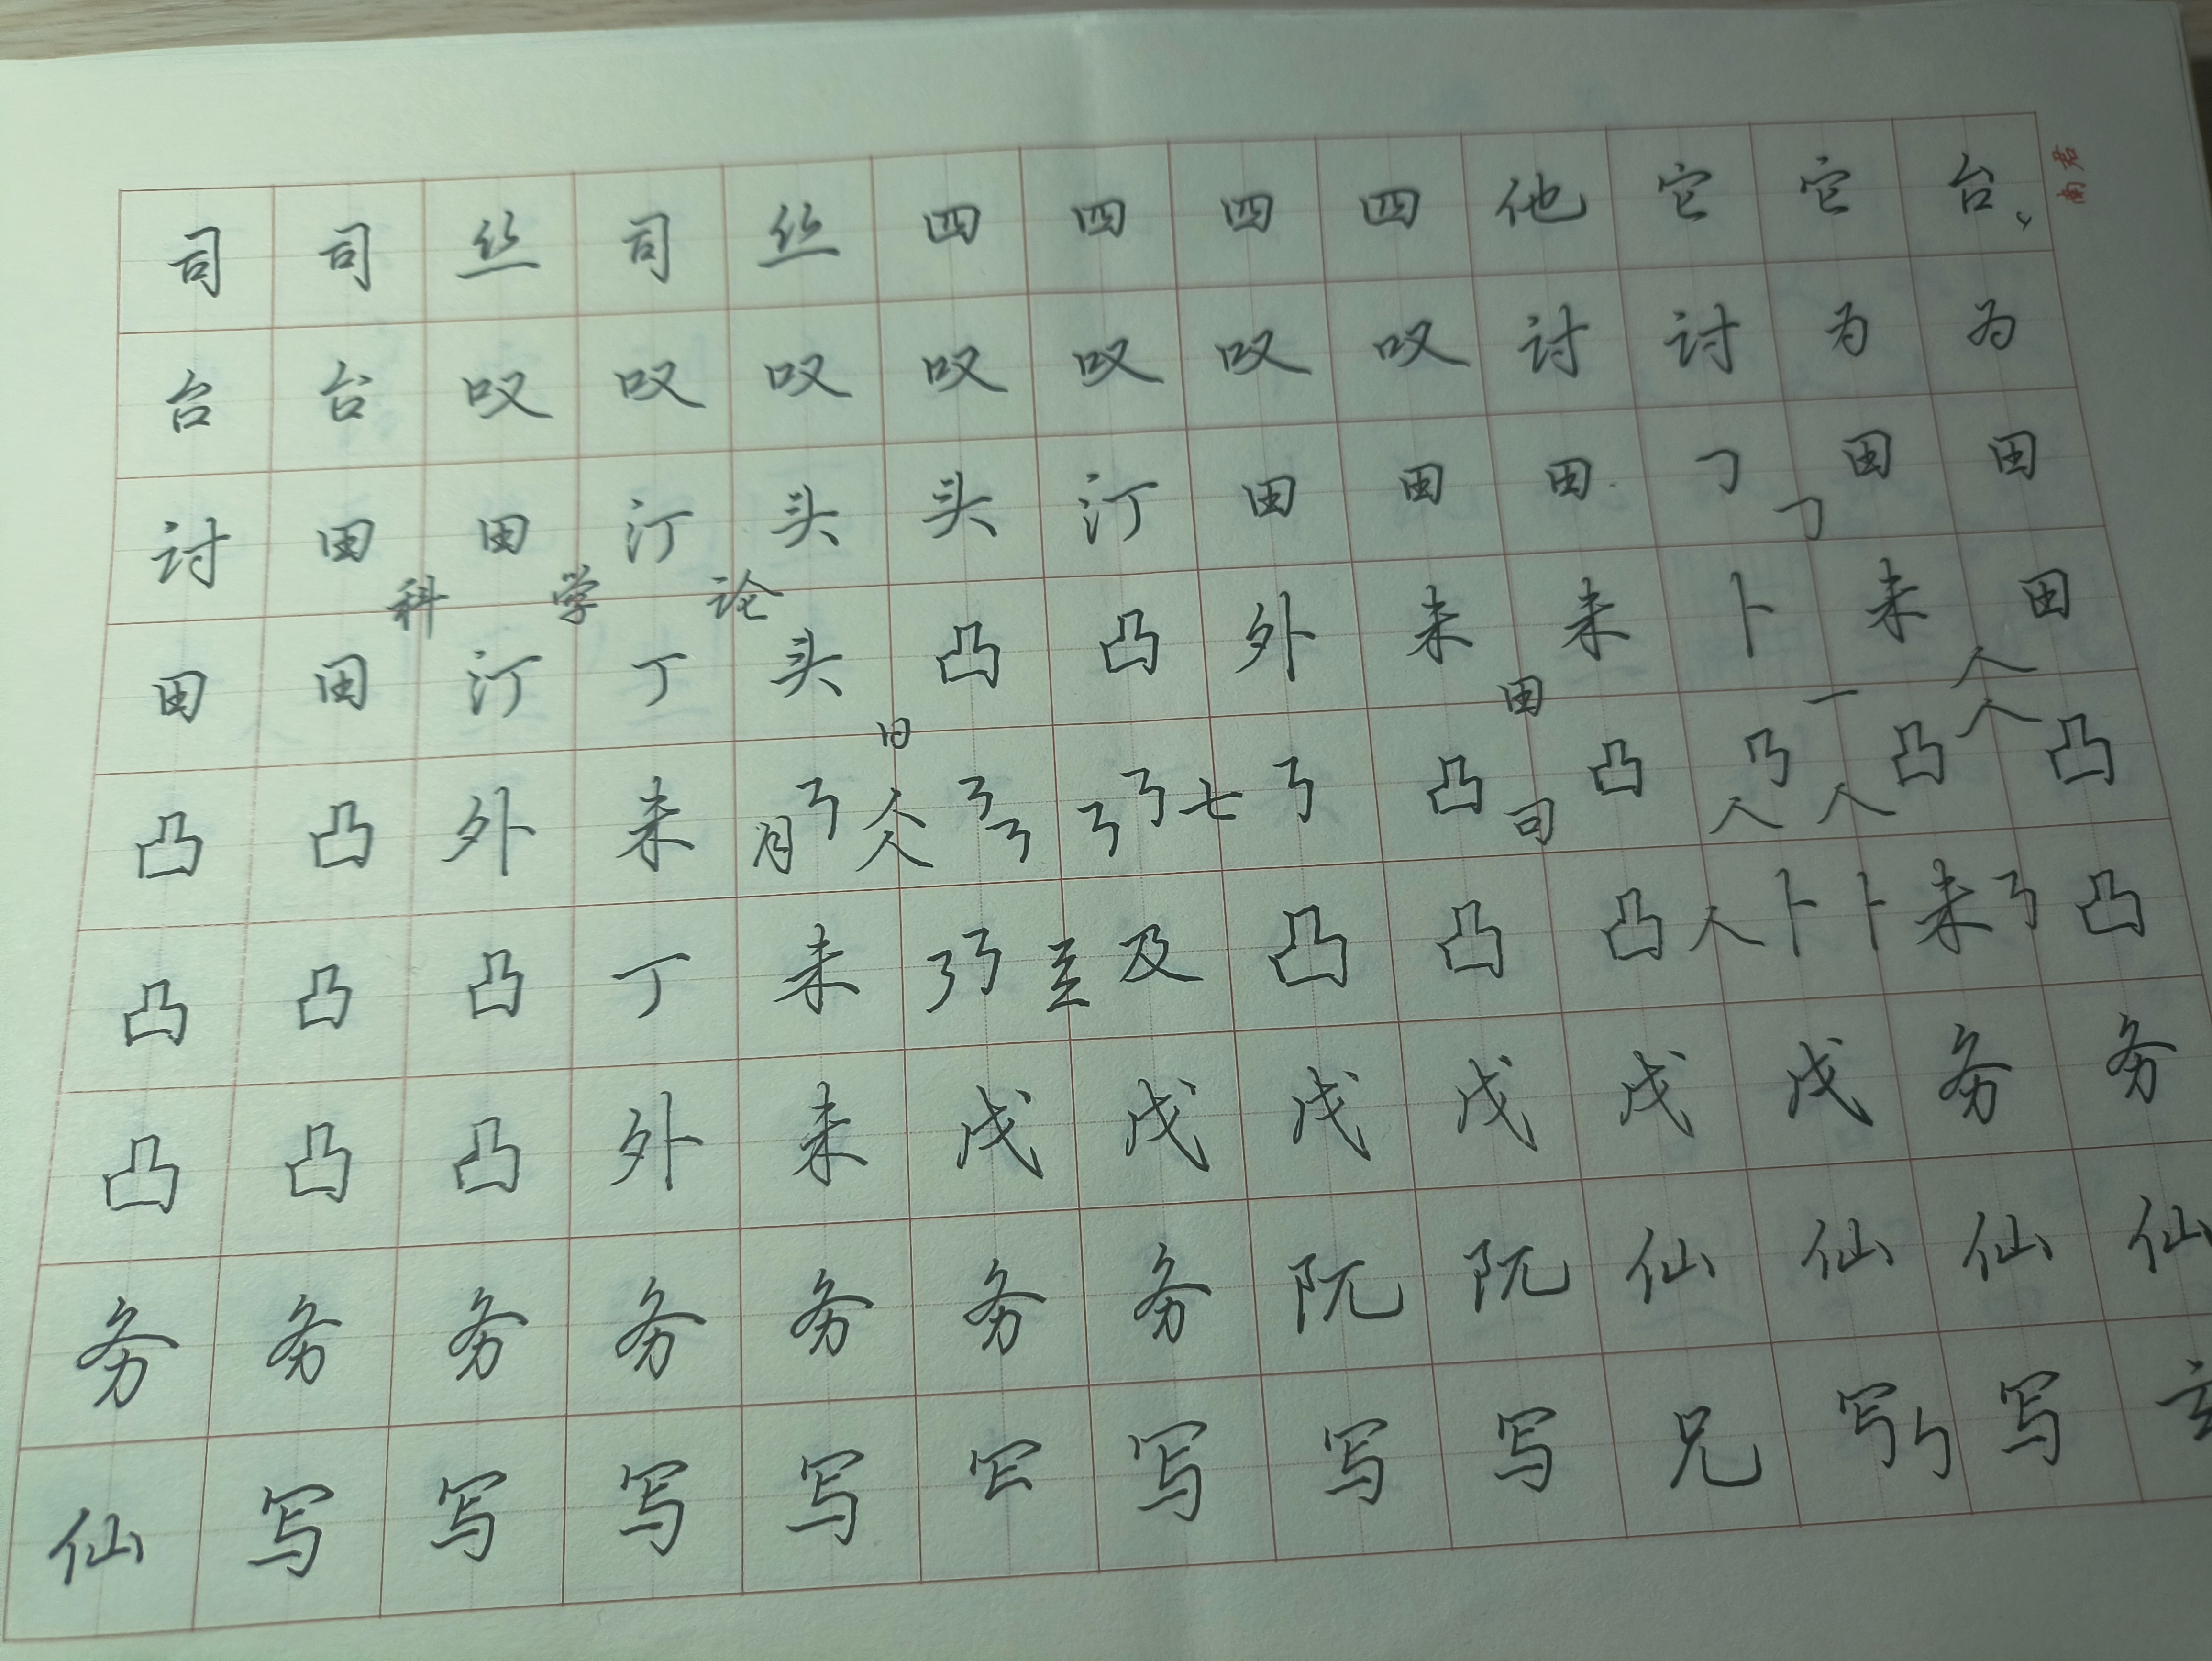 司司丝司丝四四四四他它它台
南君
台台叹叹叹叹叹叹叹讨讨为为
讨田田汀头头汀田田田㇆㇆田田
科学论
田田汀丁头凸凸外未未卜未田
田一人人
凸凸外未月人人七凸司凸人人凸凸
凸凸凸丁未及凸凸凸人卜卜未凸
凸凸凸外未戊戊戊戊戊戊务务
务务务务务务务阮阮仙仙仙仙
仙写写写写写写写兄写写